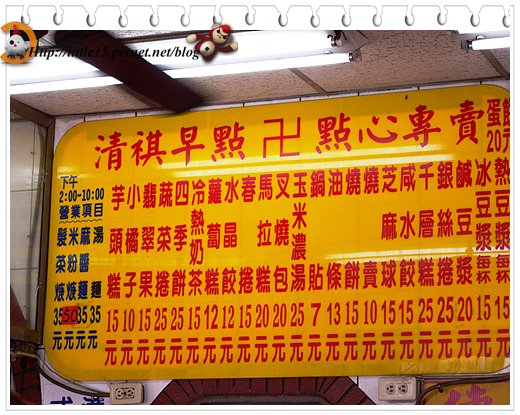 Http://little15.pixnet.net/blog
清祺早點 卍 點心專賣
蛋餅20元
下午
2:00~10:00
營業項目
髮菜焿35元
米粉焿50元
麻醬麵35元
湯麵35元
芋頭糕15元
小橘子10元
翡翠果15元
蔬菜捲25元
四季餅25元
冷熱奶茶15元
蘿蔔糕12元
水晶餃12元
春捲15元
馬拉糕20元
叉燒包20元
玉米濃湯25元
鍋貼7元
油條13元
燒餅15元
燒賣10元
芝麻球15元
咸水餃15元
千層糕25元
銀絲捲25元
鹹豆漿20元
冰豆漿每杯15元
熱豆漿每杯15元